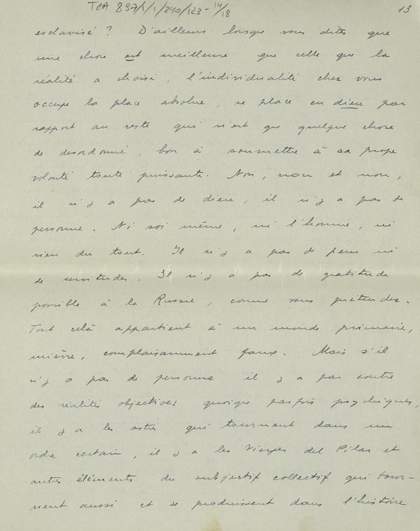 TGA 897/1/1/240/123-14/18
13
esclavisé ? D'ailleurs lorsque vous dites que
une chose est meilleure que celle que la
réalité a choisi, l'individualité chez vous
occupe la place absolue, se place en dieu par
rapport au reste qui n'est que quelque chose
de desordonné, bon à soumettre à sa propre
volonté toute puissante. Non, non et non,
il n'y a pas de dieu, il n'y a pas de
personne. Ni soi même, ni l'homme, ni
rien du tout. Il n'y a pas de peur ni
de servitudes. Il n'y a pas de gratitude
possible à la Russie, comme vous pretendez.
Tout celà appartient à un monde primaire,
mièvre, complaisamment faux. Mais s'il
n'y a pas de personne il y a par contre
des réalités objectives quoique parfois psychiques,
il y a les astres qui tournent dans un
ordre certain, il y a les Vierges del Pilar et
autres éléments du subjectif collectif qui tour-
nent aussi et se produisent dans l'histoire